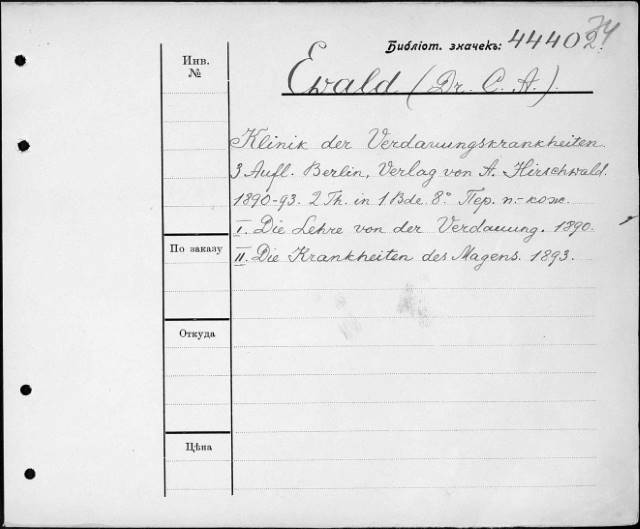 Библiот. значекъ: 44402
Инв.
№
Ewald (Dr. C. A.).
Klinik der Verdauungskrankheiten.
3 Aufl. Berlin, Verlag von A. Hirschwald.
1890-93. 2 Th. in 1 Bde. 8° Пер. п.-кож.
I. Die Lehre von der Verdauung. 1890.
По заказу
II. Die Krankheiten des Magens. 1893.
Откуда
Цѣна